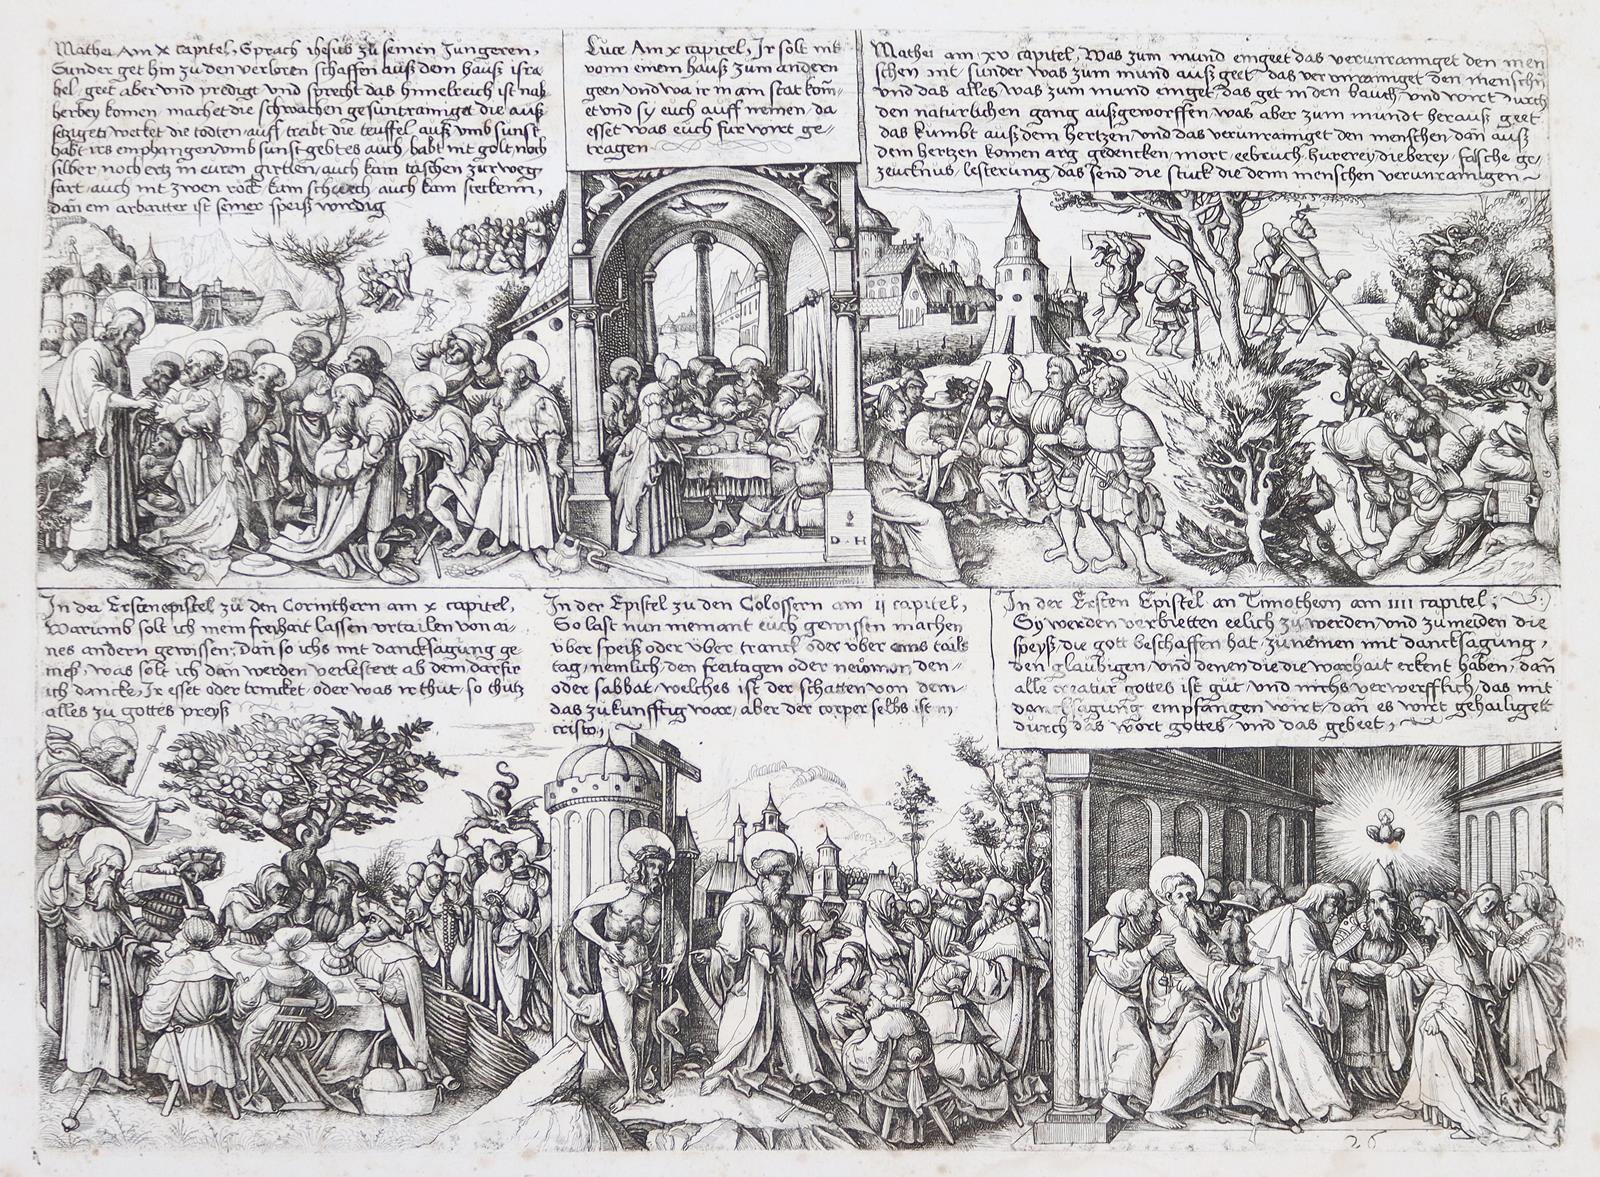 Mathei Am x capitel, Sprach ihesus zu seinen Jungeren,
Sunder get hin zu den verloren schaffen auß dem hauß isra
hel, geet aber vnd predigt vnd sprecht das himelreich ist nah
herbey komen, machet die schwachen gesunt rainiget die auß
setzigen wecket die todten auf, treibt die teuffel auß vmb sunst
habt irs emphangen vmb sunst gebt es auch, habt nit golt noch
silber noch ertz in euren girtlen, auch kain täschen zür weg
fart, auch nit zwen röck kain schüech, auch kain steckenn,
dan ein arbaitter ist seiner speiß wirdig
Luce Am x capitel, Ir solt nit
vonn einem hauß zum andern
geen vnd wa ir in ain stat kom̄-
et vnd sy euch auff nemen, da
esset was euch fur wirt ge-
tragen
Mathei am xv capitel, Was zum mund eingeet das verunrainiget den men
schen nit, sunder was zum mund auß geet das verunrainiget den menschn̄
vnd das alles was zum mund einget, das get in den bauch, vnd wirt durch
den naturlichen gang außgeworffen, was aber zum mundt herauß geet
das kumbt auß dem hertzen, vnd das verunrainiget den menschen, dan̄ auß
dem hertzen komen arg gedencken, mort, eebruch, hurerey, dieberey, falsche ge-
zeucknus, lesterung, das send die stuck die denn menschen verunrainigen
D · H
In der Ersten epistel zu den Corinthern am x capitel,
Warumb solt ich mein freyhait lassen vrtailen von ai-
nes andern gewissen: Dan so ichs mit dancksagung ge-
nieß, was solt ich dan werden verlestert ab dem darfir
ich dancke, Ir esset oder trincket, oder was ir thut, so thutz
alles zu gottes preyß
In der Epistel zu den Colossern am ij capitel,
So last nun niemant euch gewissen machen
über speiß oder über tranck oder über eins tails
tag, nemlich, den freitagen oder newmon den--
oder sabbat, welches ist der schatten von dem--
das zukunfftig war, aber der corper selbs ist in
cristo,
In der Ersten Epistel an Timotheon am iiii capitel;
Sy werden verbietten eelich zu werden, vnd zu meiden die
speyß, die gott beschaffen hat, zu nemen mit dancksagung,
den glaubigen, vnd denen die die warhait erkent haben, dan̄
alle creatur gottes ist gut, vnd nichs verwerfflich, das mit
dancksagung empfangen wirt, dan es wirt gehailiget
durch das wort gottes, vnd das gebeet,
26